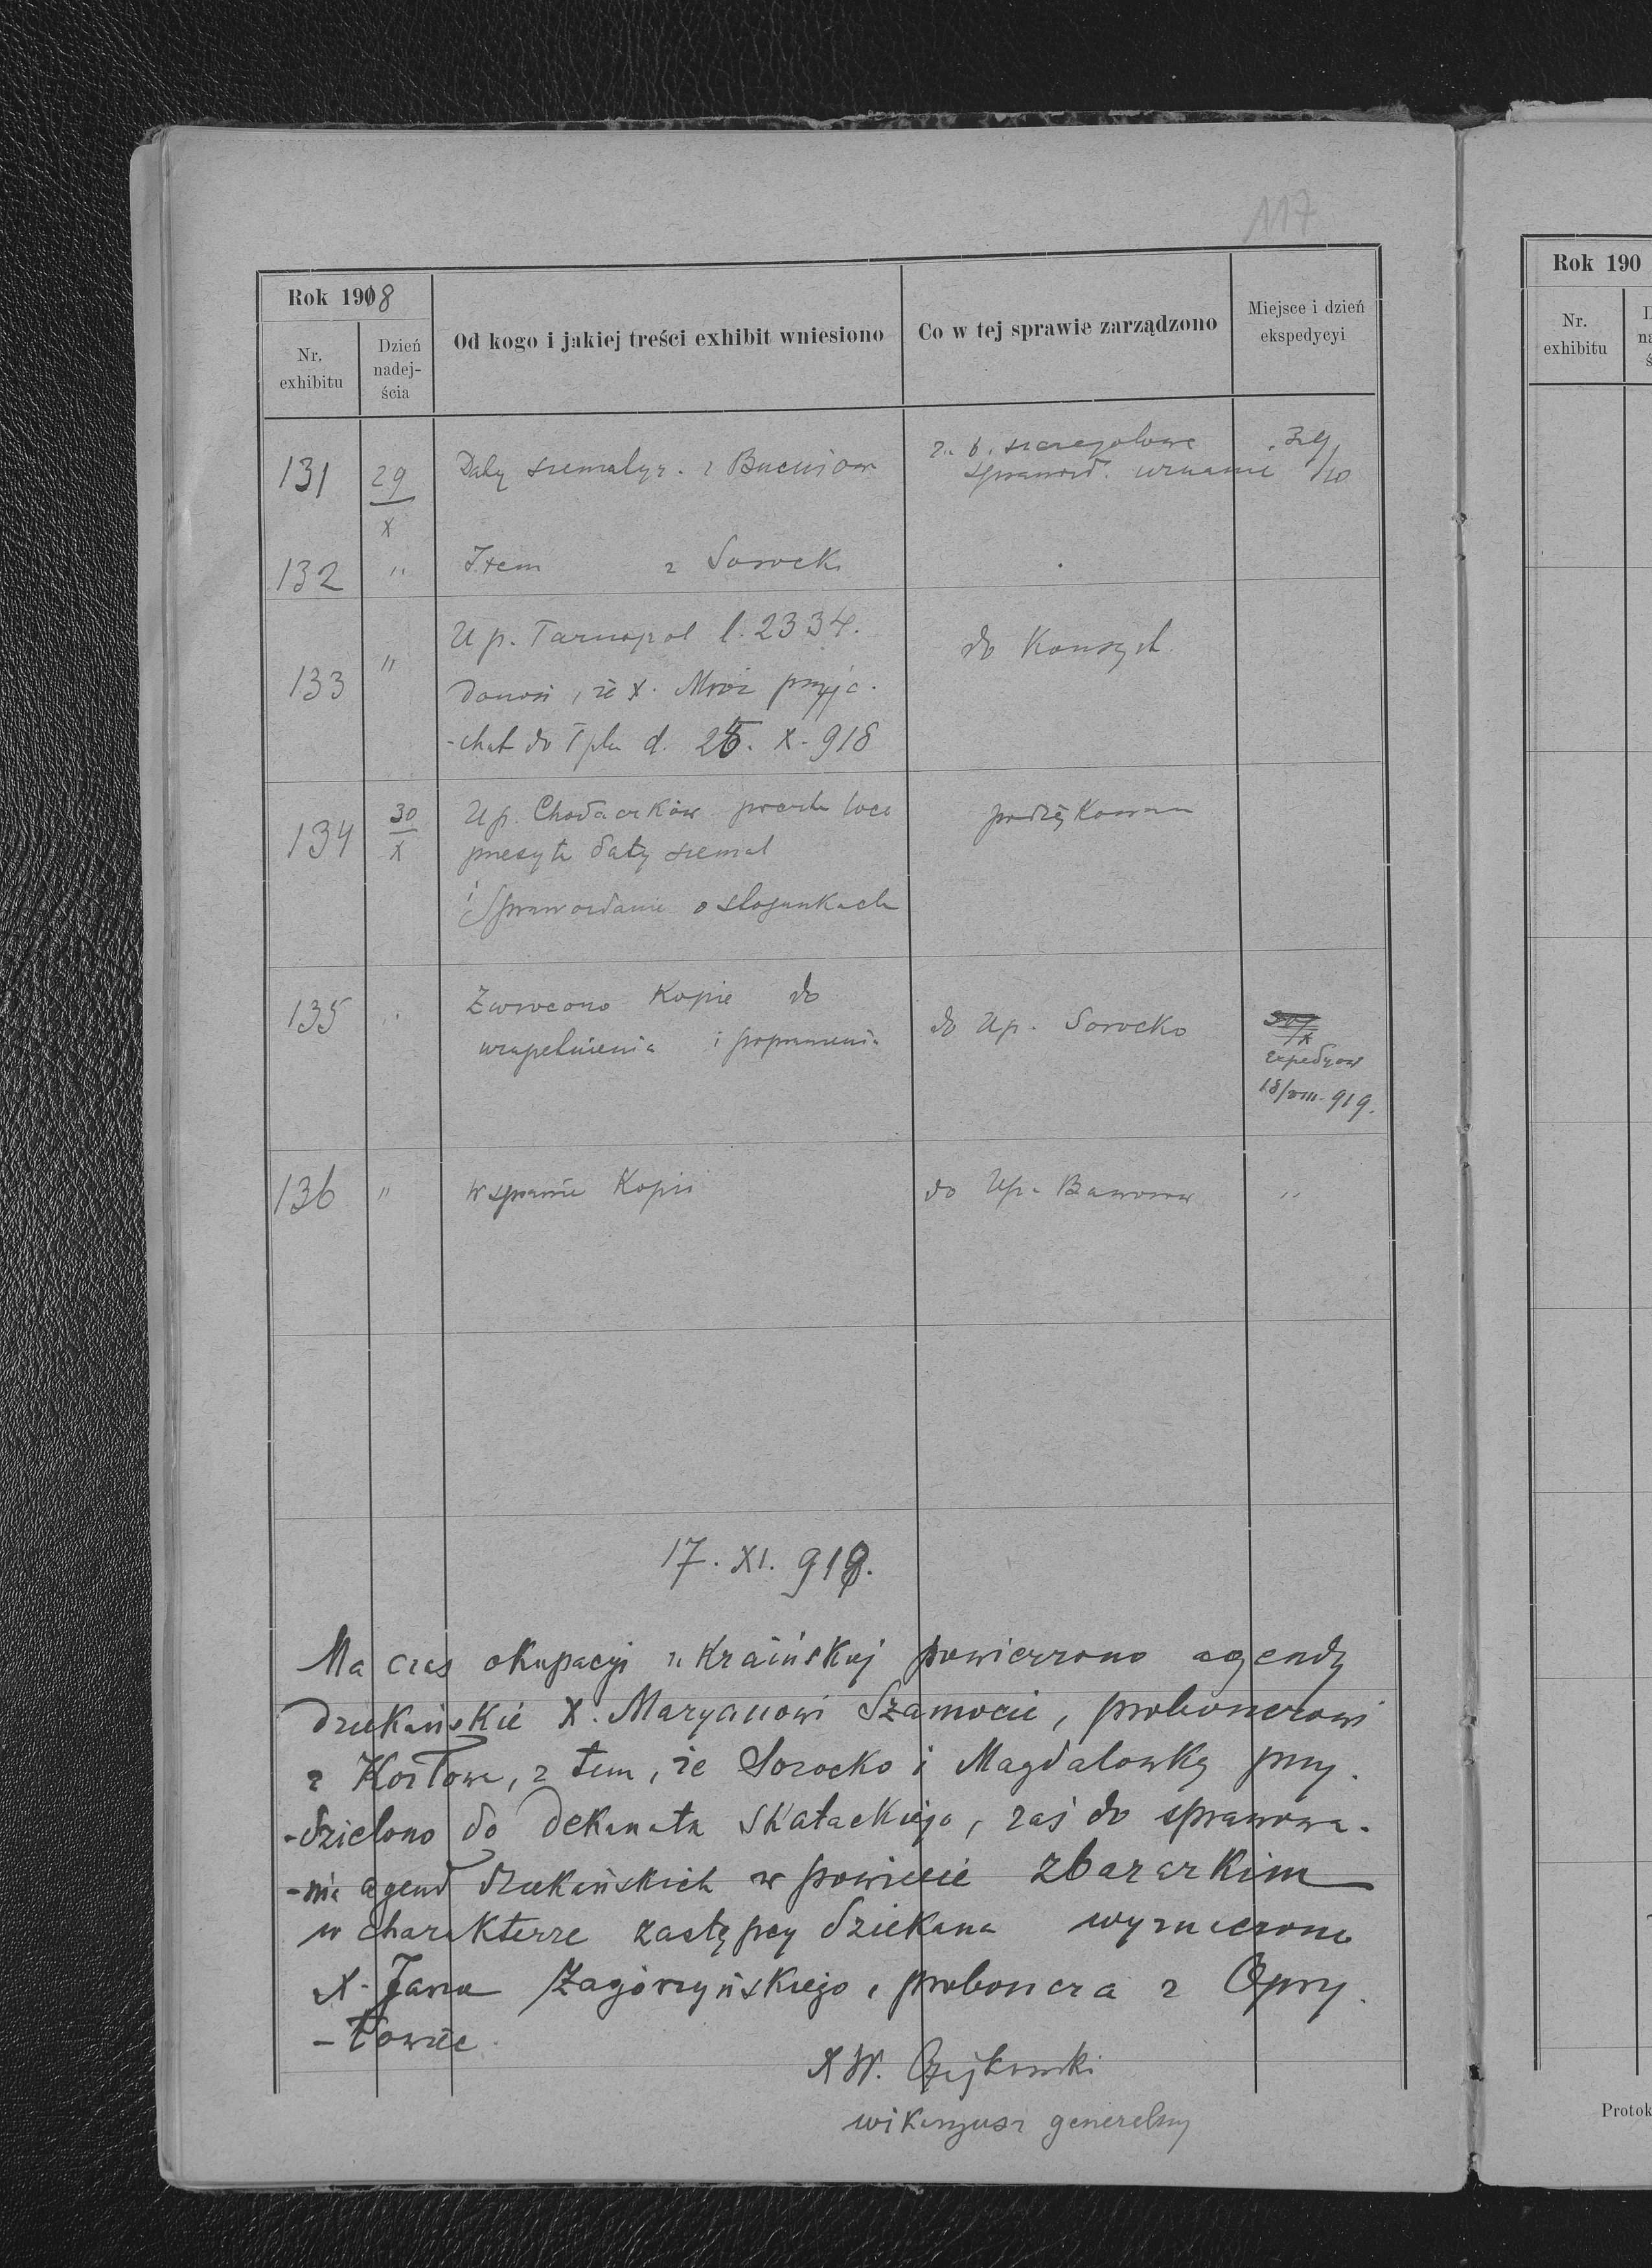 117
Rok 1918
Nr. exhibitu
Dzień nadejścia
Od kogo i jakiej treści exhibit wniesiono
Co w tej sprawie zarządzono
Miejsce i dzień ekspedycyi
131 29/X Daty szematyz. z Bucniow
szczegołowe
sprawozd. uznanie /10
132 " Item z Sorock
133 " Up. Tarnopol l. 2334.
donosi, że X. Mroz przyje-
-chał do Tpla d. 25. X. 918
do Konsyst.
134 30/X Up. Chodaczków loco
przesyła daty szemat
i Sprawozdanie o stosunkach
podziękowano
135 " Zwrocono Kopie do
uzupełnienia i poprawienia
do Up. Sorocko
30/X
expedyow
18/VIII. 919.
136 " W sprawie Kopii
do Up. Baworow
"
17. XI. 919.
Na czas okupacyi ukraińskiej powierzono agendy
dziekańskie X. Maryanowi Szamocie, proboszczowi
z Kozłowa, z tem, że Sorocko i Magdalowkę przy-
-dzielono do dekanatu skałackiego, zaś do sprawowa-
-nia agend dziekańskich w powiecie zbarazkim
w charakterze zastępcy dziekana wyznaczono
X. Jana Zagórzyńskiego, proboszcza z Opry-
-łowiec.
X W. Czajkowski
wikaryusz generalny
Rok 190
Nr. exhibitu
Protok